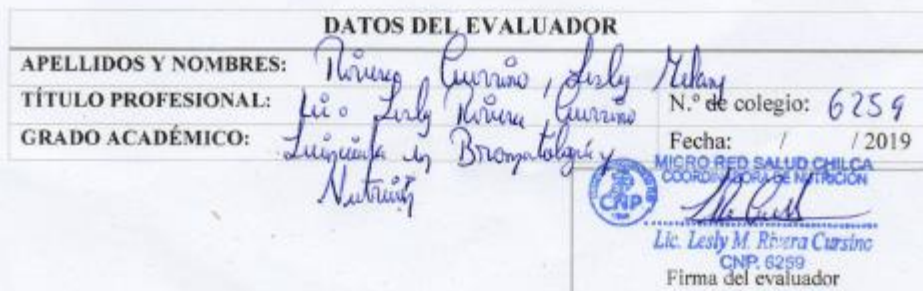 DATOS DEL EVALUADOR
APELLIDOS Y NOMBRES: Rivera Cursino, Lesly Melany
TÍTULO PROFESIONAL: Lic. Lesly Rivera Cursino N.º de colegio: 6259
GRADO ACADÉMICO: Licenciada en Bromatología y Fecha: / / 2019
Nutrición
MICRO RED SALUD CHILCA
COORDINADORA DE NUTRICIÓN
CNP
Lic. Lesly M. Rivera Cursino
CNP. 6259
Firma del evaluador